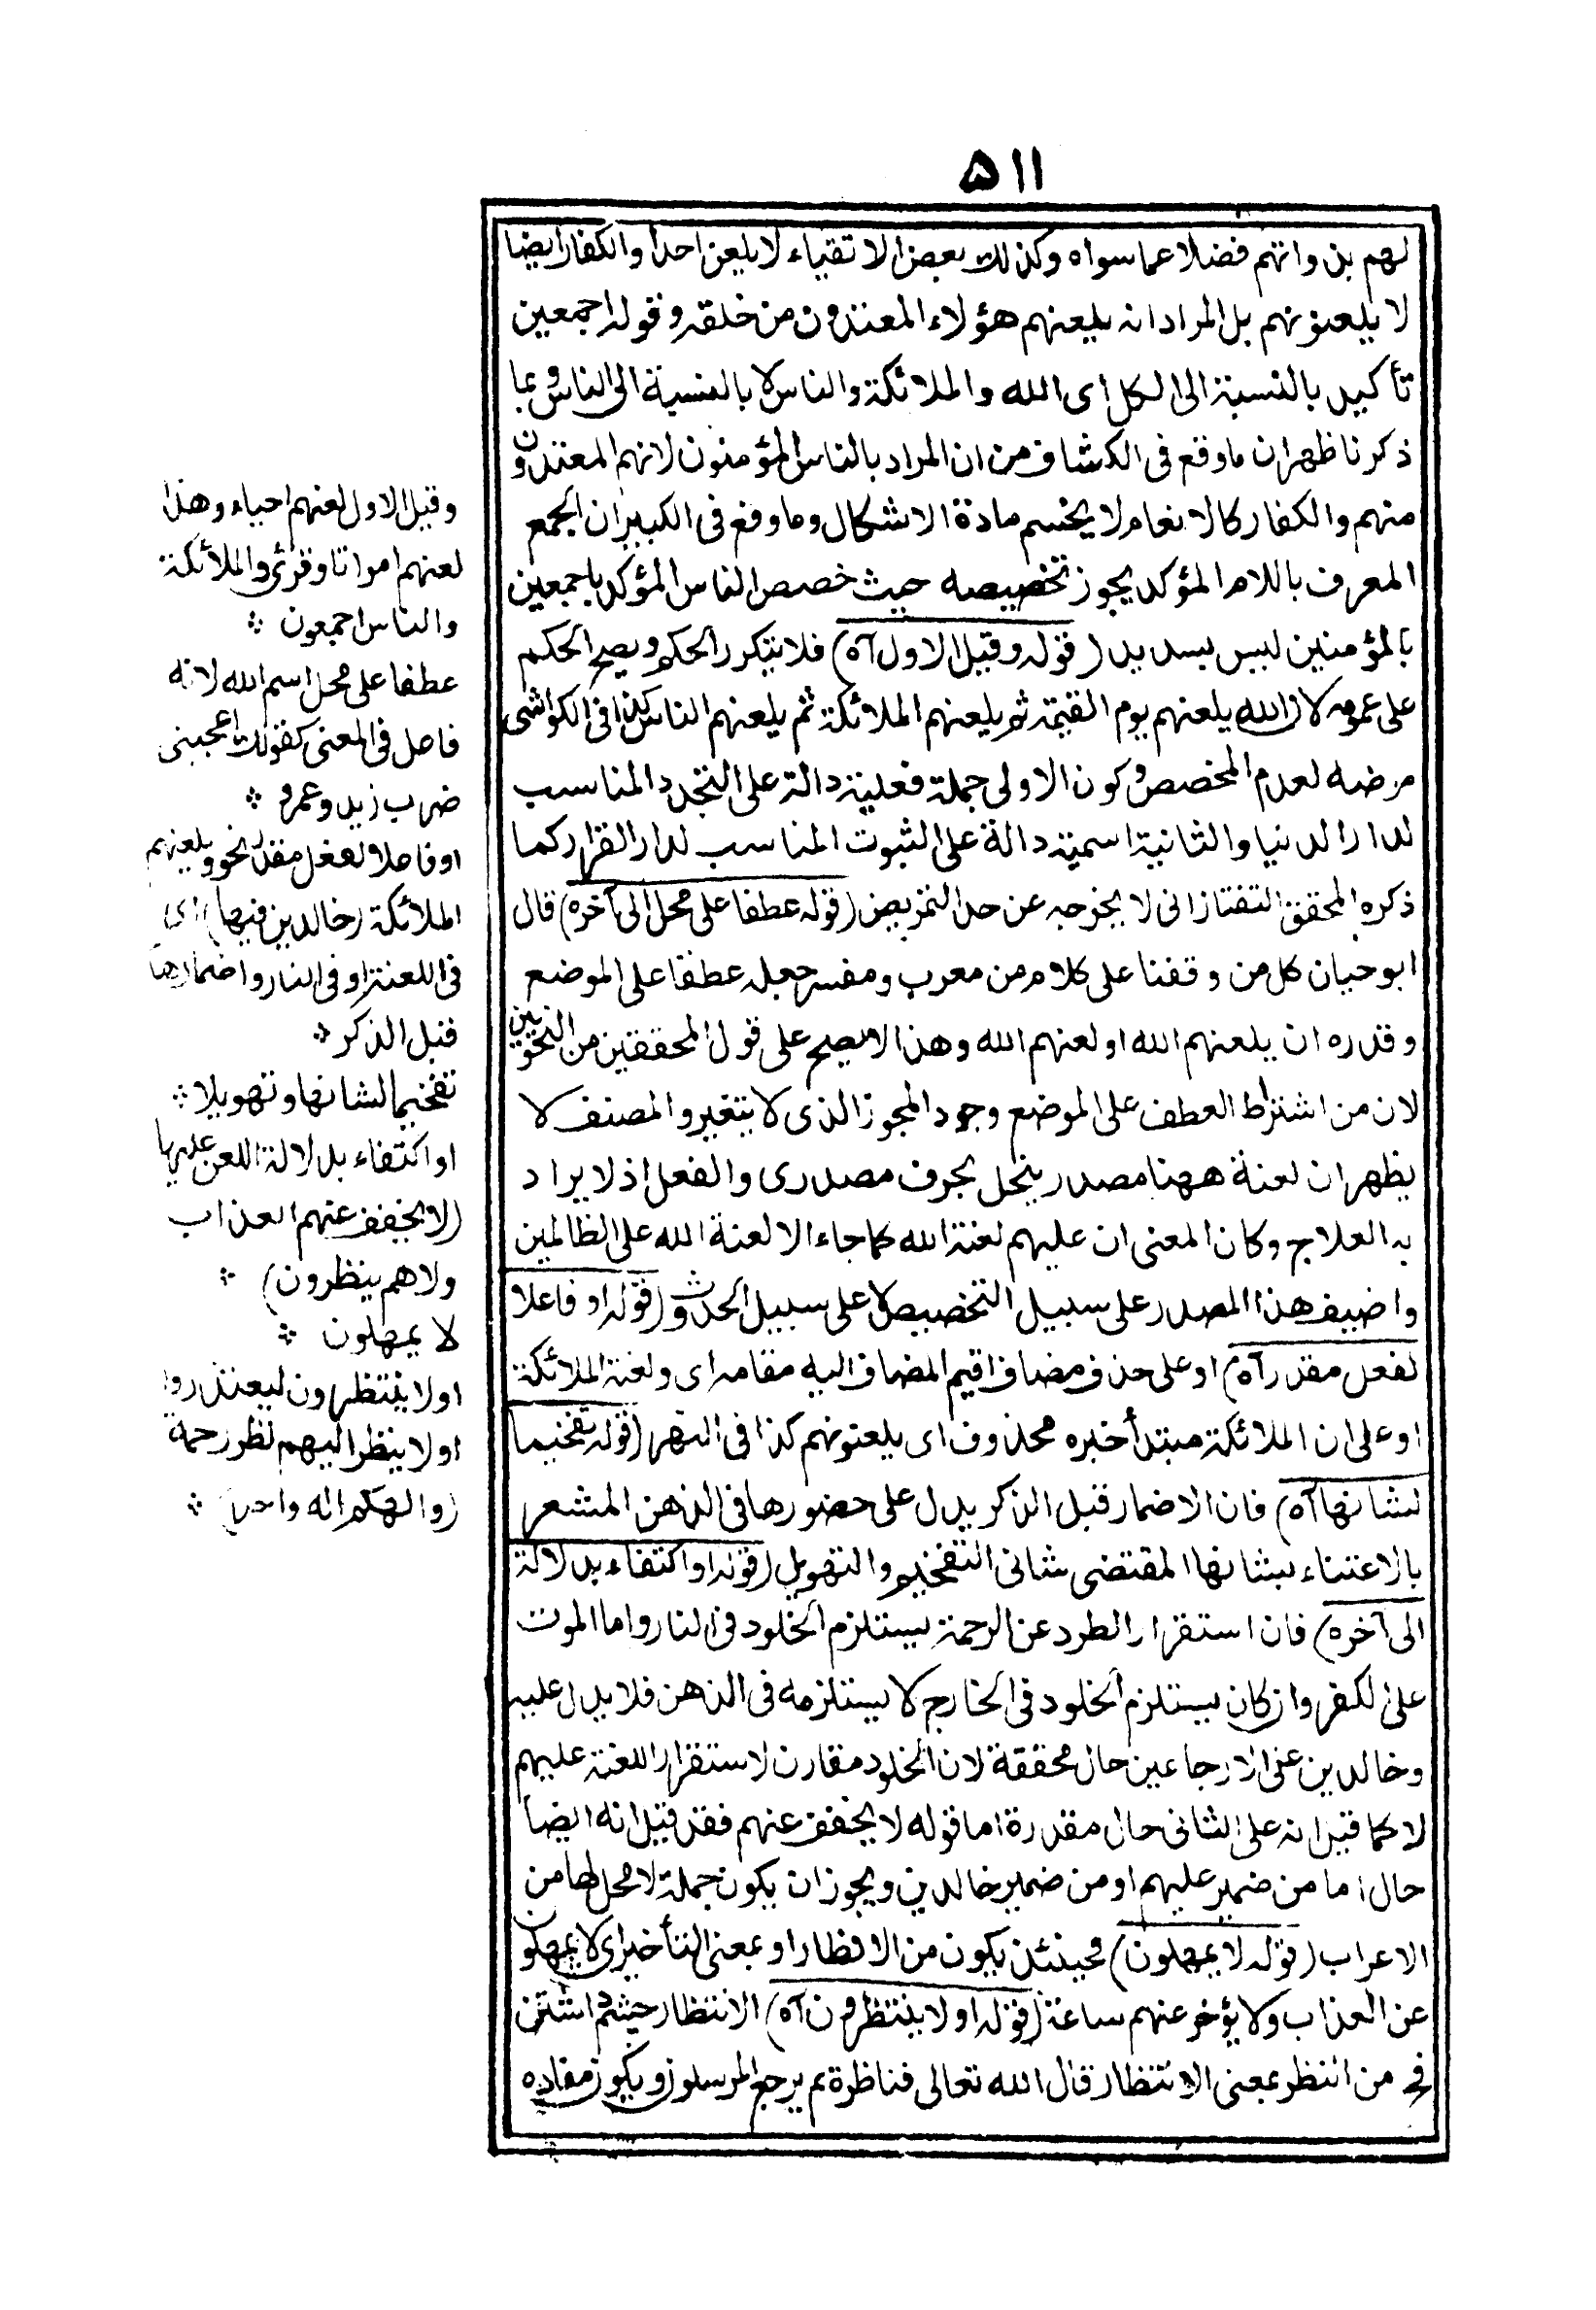 ۵۱۱
لهم بذواتهم فضلا عما سواه وكذلك بعض الاتقياء لا يلعن احدا والكفار ايضا
لا يلعنونهم بل المراد انه يلعنهم هؤلاء المعتدون من خلقه وقوله اجمعين
تأكيد بالنسبة الى الكل اى الله والملائكة والناس لا بالنسبة الى الناس وبما
ذكرنا ظهر ان ما وقع فى الكشاف من ان المراد بالناس المؤمنون لانهم المعتدون
منهم والكفار كالانعام لا يحسم مادة الاشكال وما وقع فى الكبير ان الجمع
المعرف باللام المؤكد يجوز تخصيصه حيث خصص الناس المؤكد باجمعين
بالمؤمنين ليس بسديد (قوله وقيل الاول آه) فلا يتكرر الحكم ويصح الحكم
على عمومه لان الله يلعنهم يوم القيمة ثم يلعنهم الملائكة ثم يلعنهم الناس كذا فى الكواشى
مرضه لعدم المخصص وكون الاولى جملة فعلية دالة على التجدد المناسب
لدار الدنيا والثانية اسمية دالة على الثبوت المناسب لدار القرار كما
ذكره المحقق التفتازانى لا يخرجه عن حد التمريض (قوله عطفا على محل الى آخره) قال
ابو حيان كل من وقفنا على كلامه من معرب ومفسر جعله عطفا على الموضع
وقدره ان يلعنهم الله او لعنهم الله وهذا لا يصح على قول المحققين من النحويين
لان من اشتراط العطف على الموضع وجود المجوز الذى لا يتغير والمصنف لا
يظهر ان لعنة ههنا مصدر ينحل بحرف مصدرى والفعل اذ لا يراد
به العلاج وكان المعنى ان عليهم لعنة الله كما جاء الا لعنة الله على الظالمين
واضيف هذا المصدر على سبيل التخصيص لا على سبيل الحدوث (قوله او فاعلا
لفعل مقدر آه) او على حذف مضاف اقيم المضاف اليه مقامه اى ولعنة الملائكة
او على ان الملائكة مبتدأ خبره محذوف اى يلعنونهم كذا فى النهر (قوله تفخيما
لشانها آه) فان الاضمار قبل الذكر يدل على حضورها فى الذهن المشعر
بالاعتناء بشانها المقتضى شانى التفخيم والتهويل (قوله او اكتفاء بدلالة
الى آخره) فان استقرار الطرد عن الرحمة يستلزم الخلود فى النار واما الموت
على الكفر وان كان يستلزم الخلود فى الخارج لا يستلزمه فى الذهن فلا يدل عليه
وخالدين على الارجاعين حال محققة لان الخلود مقارن لاستقرار اللعنة عليهم
لا كما قيل انه على الثانى حال مقدرة اما قوله لا يخفف عنهم فقد قيل انه ايضا
حال اما من ضمير عليهم او من ضمير خالدين ويجوز ان يكون جملة لا محل لها من
الاعراب (قوله لا يمهلون) فحينئذ يكون من الانظار او بمعنى التأخير اى لا يمهلون
عن العذاب ولا يؤخر عنهم ساعة (قوله او لا ينتظرون آه) الانتظار
من انتظر بمعنى الانتظار قال الله تعالى فناظرة بم يرجع المرسلون ويكون مفاده
وقيل الاول لعنهم احياء وهذا
لعنهم امواتا وقرئ والملائكة
والناس اجمعون
عطفا على محل اسم الله لانه
فاعل فى المعنى كقولك اعجبنى
ضرب زيد وعمرو
او فاعلا لفعل مقدر نحو ويلعنهم
الملائكة (خالدين فيها) اى
فى اللعنة او فى النار واضمارها
قبل الذكر
تفخيما لشانها وتهويلا
او اكتفاء بدلالة اللعن عليها
(لا يخفف عنهم العذاب
ولا هم ينظرون)
لا يمهلون
او لا ينتظرون ليعتذروا
او لا ينظر اليهم نظر رحمة
(والهكم اله واحد)